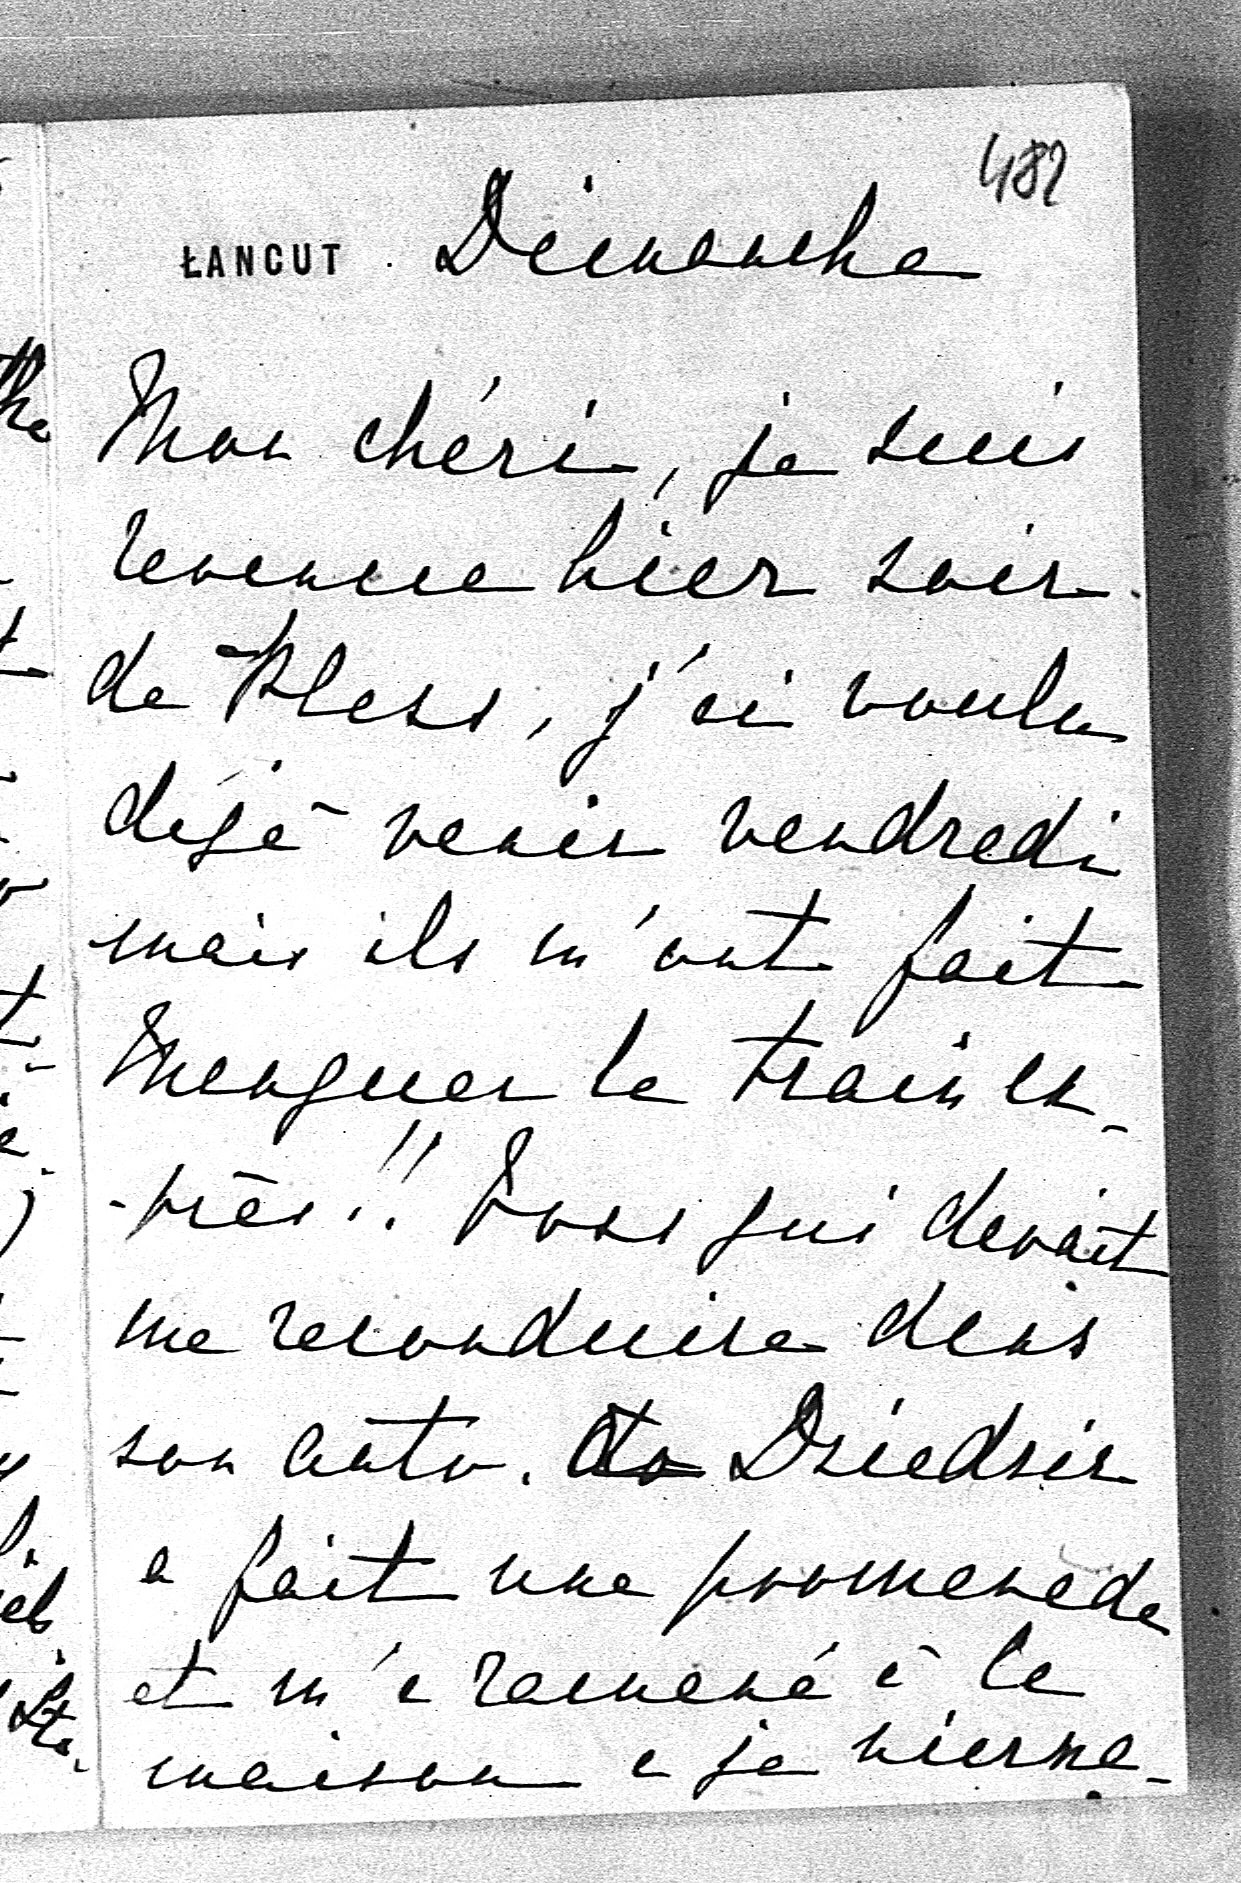 482
ŁANCUT Dimanche
Mon chéri, je suis
revenue hier soir
de Pless, j'ai voulu
déjà venir vendredi
mais ils m'ont fait
manquer le train ex-
-près!! qui devait
me reconduire dans
son auto. Dziedzic
a fait une promenade
et m'a ramené à la
maison a ja